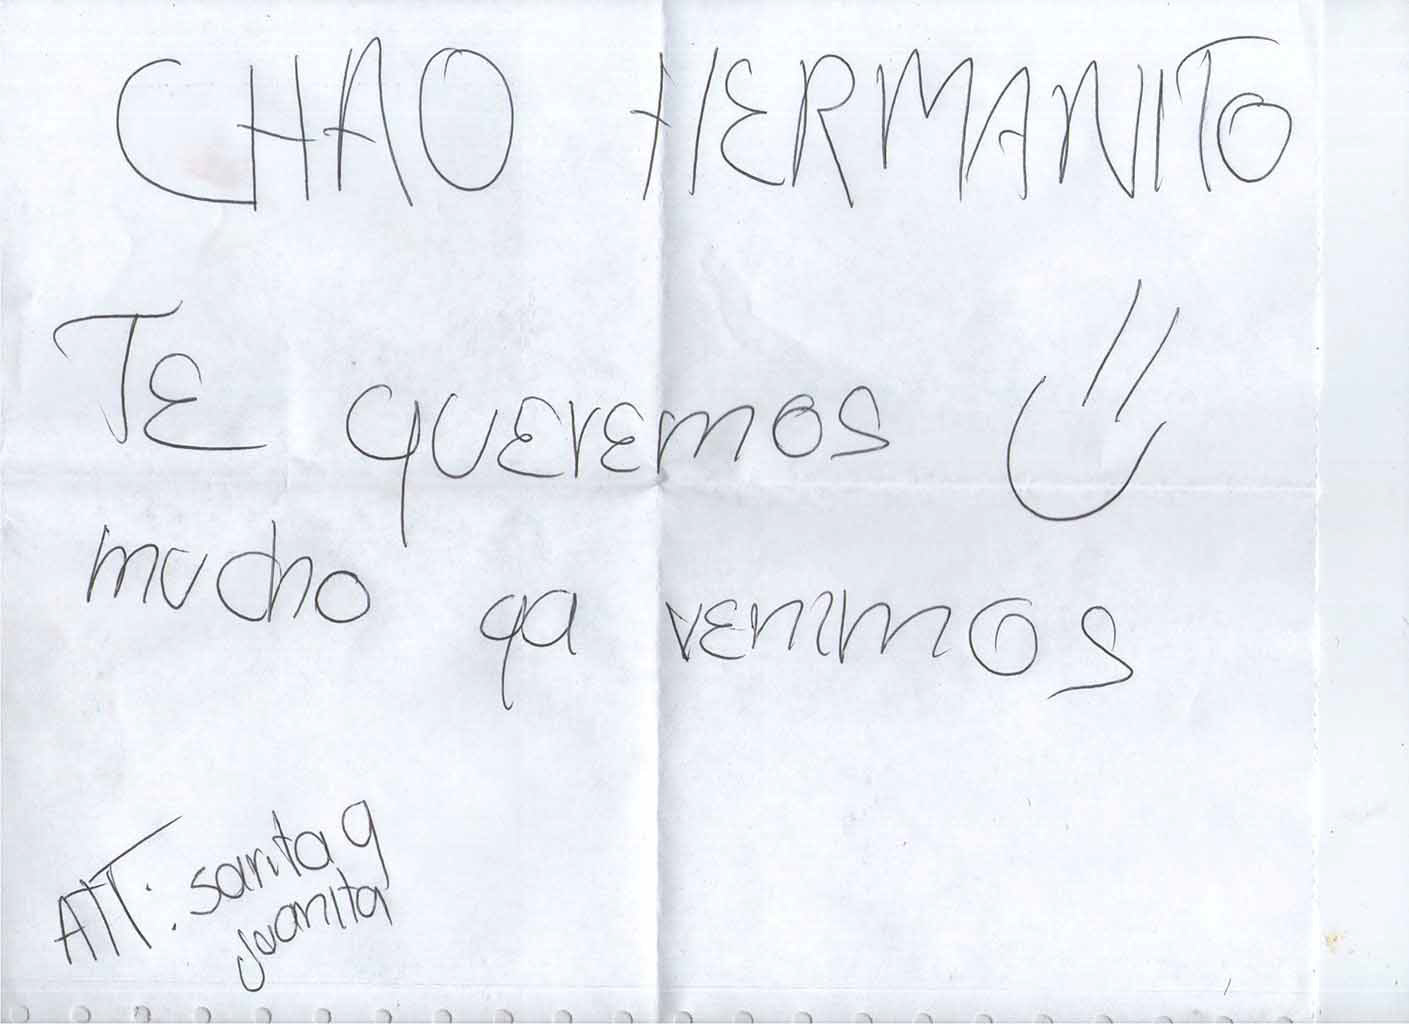 CHAO HERMANITO
TE QUEREMOS
mucho ya venimos
ATT: sarita y
juanita